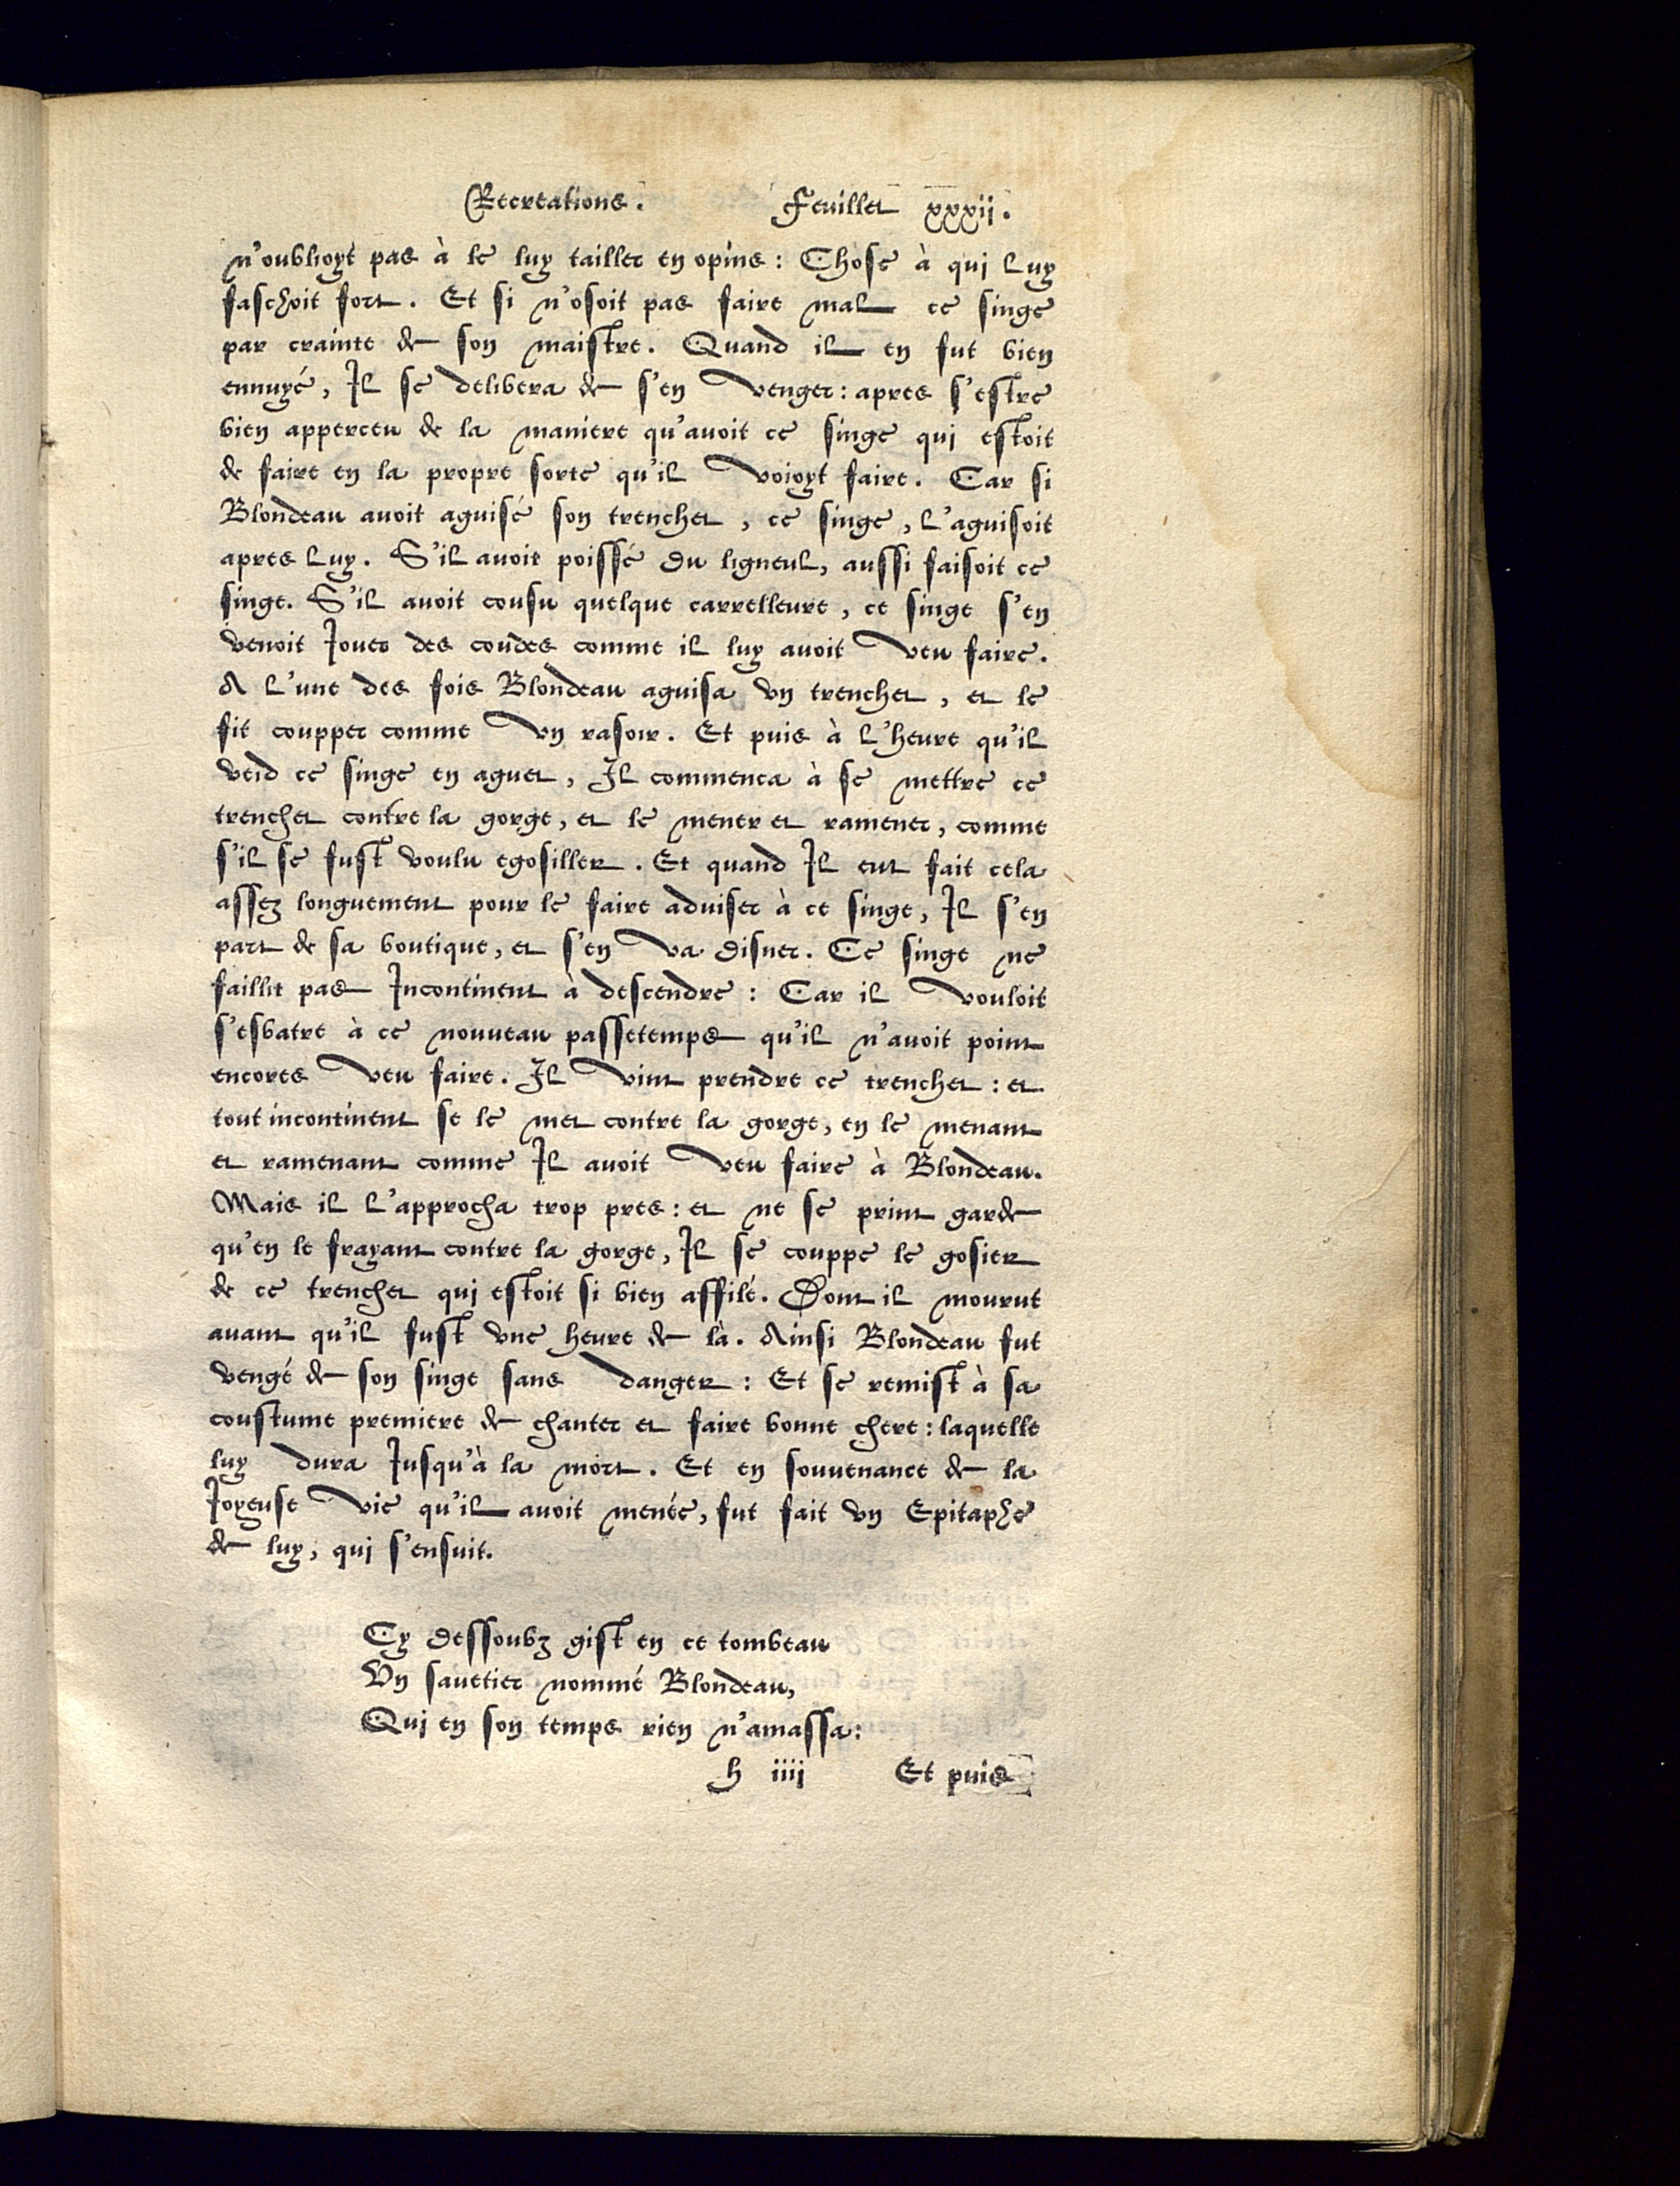 Recreations. Feuillet xxxii.
n'oublioyt pas à le luy tailler en opins: Chose à qui luy
faschoit fort. Et si n'osoit pas faire mal ce singe
par crainte de son maistre. Quand il en fut bien
ennuyé, Il se delibera de s'en venger: apres s'estre
bien apperceu de la maniere qu'auoit ce singe qui estoit
de faire en la propre sorte qu'il voioyt faire. Car si
Blondeau auoit aguisé son trenchet, ce singe, l'aguisoit
apres luy. S'il auoit poissé du ligneul, aussi faisoit ce
singe. S'il auoit cousu quelque carrelleure, ce singe s'en
venoit Iouer des coudes comme il luy auoit veu faire.
A l'une des fois Blondeau aguisa vn trenchet, et le
fit coupper comme vn rasoir. Et puis à l'heure qu'il
veid ce singe en aguet, Il commenca à se mettre ce
trenchet contre la gorge, et le mener et ramener, comme
s'il se fust voulu egosiller. Et quand Il eut fait cela
assez longuement pour le faire aduiser à ce singe, Il s'en
part de sa boutique, et s'en va disner. Ce singe ne
faillit pas Incontinent à descendre: Car il vouloit
s'esbatre à ce nouueau passetemps qu'il n'auoit point
encores veu faire. Il vint prendre ce trenchet: et
tout incontinent se le met contre la gorge, en le menant
et ramenant comme Il auoit veu faire à Blondeau.
Mais il l'approcha trop pres: et ne se print garde
qu'en le frayant contre la gorge, Il se couppe le gosier
de ce trenchet qui estoit si bien affilé. Dont il mourut
auant qu'il fust vne heure de là. Ainsi Blondeau fut
vengé de son singe sans danger: Et se remist à sa
coustume premiere de chanter et faire bonne chere: laquelle
luy dura Iusqu'à la mort. Et en souuenance de la
Ioyeuse vie qu'il auoit menée, fut fait vn Epitaphe
de luy, qui s'ensuit.
Cy dessoubz gist en ce tombeau
Vn sauetier nommé Blondeau,
Qui en son temps rien n'amassa:
h iiij Et puis